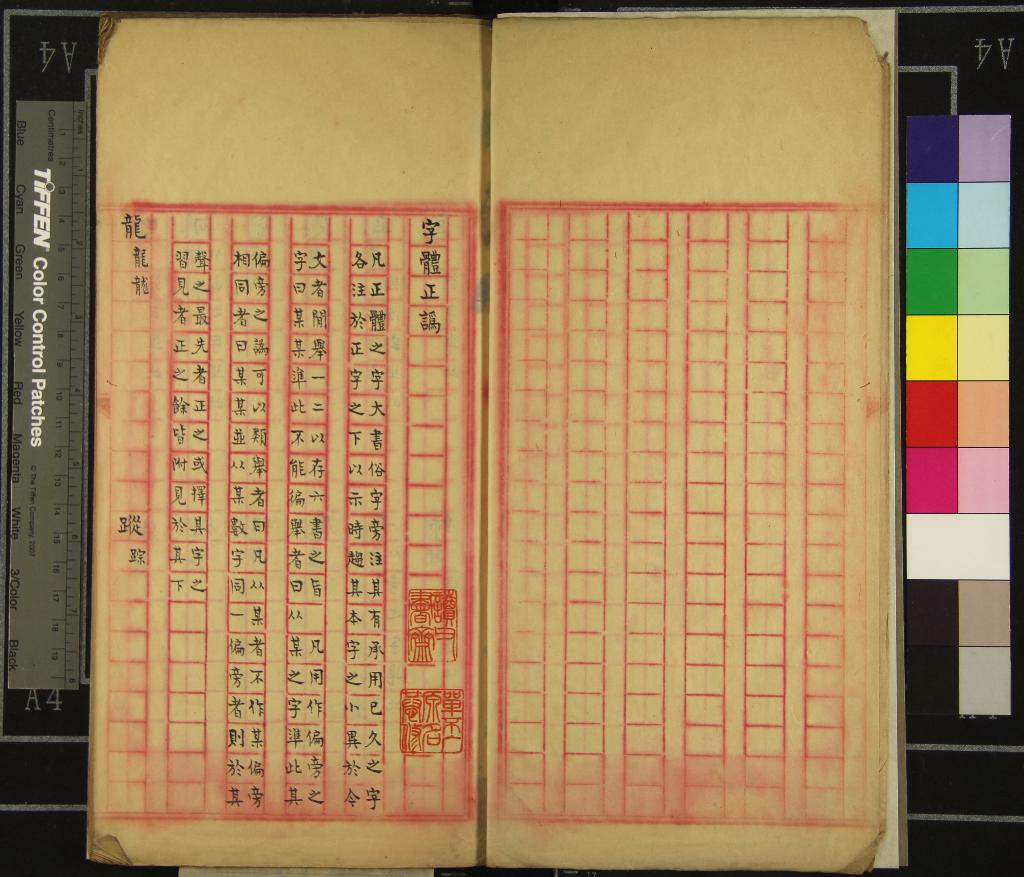 字體正譌
凡正體之字大書俗字旁注其有承用已久之字
各注於正字之下以示時趨其本字之小異於今
文者閒舉一二以存六書之旨　凡用作偏旁之
字曰某某準此不能徧舉者曰从某之字準此其
偏旁之譌可以類舉者曰凡从某者不作某偏旁
相同者曰某某並从某數字同一偏旁者則於其
聲之最先者正之或擇其字之
習見者正之餘皆附見於其下
龍　　蹤　踪
A4
A4
A4
Inches
Centimetres
TIFFEN Color Control Patches
© The Tiffen Company, 2007
Blue Cyan Green Yellow Red Magenta White 3/Color Black